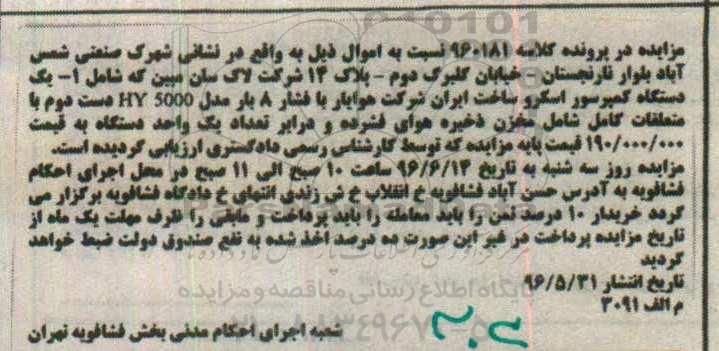 مزایده در پرونده کلاسه ۹۶۰۱۸۱ نسبت به اموال ذیل به واقع در نشانی شهرک صنعتی شمس
آباد بلوار نارنجستان - خیابان گلبرگ دوم - پلاک ۱۴ شرکت لاک سان مبین که شامل ۱- یک
دستگاه کمپرسور اسکرو ساخت ایران شرکت هوایار با فشار ۸ بار مدل HY 5000 دست دوم با
متعلقات کامل شامل مخزن ذخیره هوای فشرده و درایر تعداد یک واحد دستگاه به قیمت
۱۹۰/۰۰۰/۰۰۰ قیمت پایه مزایده که توسط کارشناس رسمی دادگستری ارزیابی گردیده است.
مزایده روز سه شنبه به تاریخ ۹۶/۶/۱۴ ساعت ۱۰ صبح الی ۱۱ صبح در محل اجرای احکام
فشافویه به آدرس حسن آباد فشافویه خ انقلاب خ ش زندی انتهای خ دادگاه فشافویه برگزار می
گردد خریدار ۱۰ درصد ثمن را باید معامله را باید پرداخت و مابقی را ظرف مهلت یک ماه از
تاریخ مزایده پرداخت در غیر این صورت ده درصد اخذ شده به نفع صندوق دولت ضبط خواهد
گردید
تاریخ انتشار ۹۶/۵/۳۱
م الف ۳۰۹۱
شعبه اجرای احکام مدنی بخش فشافویه تهران
پایگاه اطلاع رسانی مناقصه و مزایده